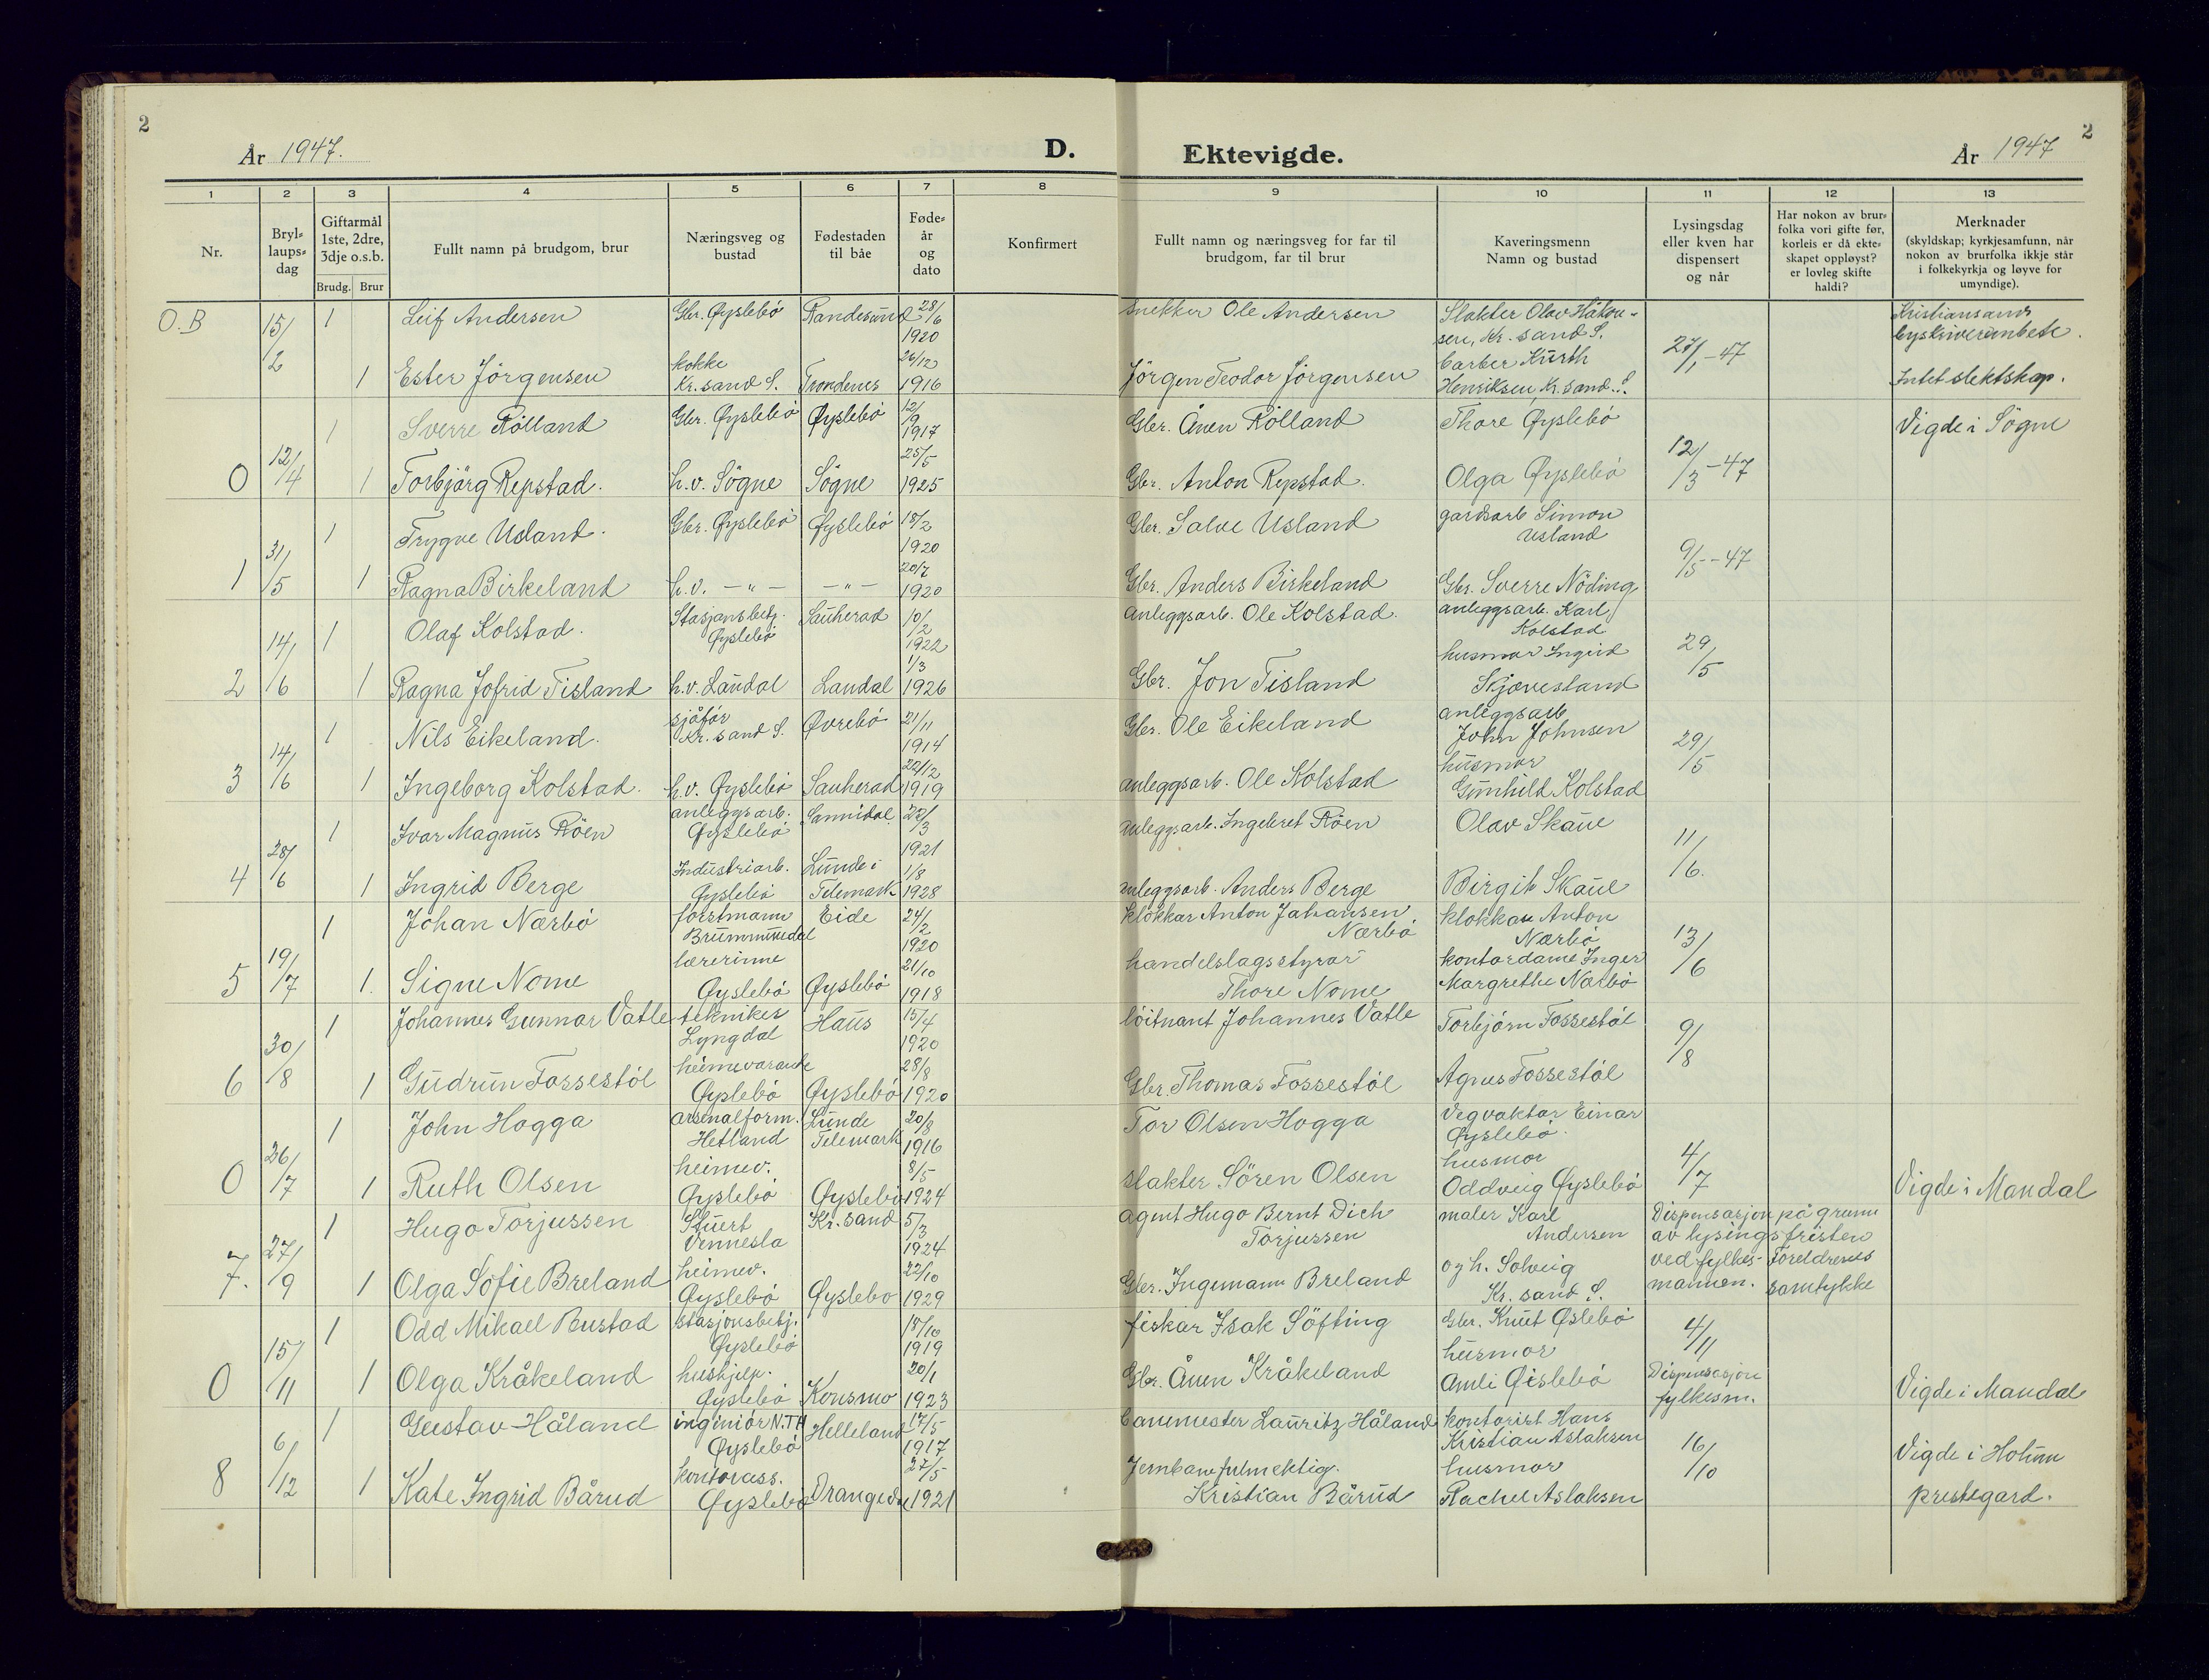 2
År 1947.
D.
Ektevigde.
År 1947
2
1
2
3
4
5
6
7
8
9
10
11
12
13
Nr.
Bryl-
laups-
dag
Giftarmål
1ste, 2dre,
3dje o.s.b.
Brudg. Brur
Fullt namn på brudgom, brur
Næringsveg og
bustad
Fødestaden
til båe
Føde-
år
og
dato
Konfirmert
Fullt namn og næringsveg for far til
brudgom, far til brur
Kaveringsmenn
Namn og bustad
Lysingsdag
eller kven har
dispensert
og når
Har nokon av brur-
folka vori gifte før,
korleis er då ekte-
skapet oppløyst?
er lovleg skifte
haldi?
Merknader
(skyldskap; kyrkjesamfunn, når
nokon av brurfolka ikkje står
i folkekyrkja og løyve for
umyndige).
O.B
15/2
1
Leif Andersen
Gbr. Øyslebö
Randesund
28/6
1920
snekker Ole Andersen
Slakter Olav Håkon-
sen, Kr. sand S.
27/1 - 47
Kristiansands
byskriverembete.
1
Ester Jörgensen
kokke
Kr.sand S.
Trondenes
26/12
1916
Jörgen Teodor Jörgensen
barber Kurth
Henriksen, Kr.sand S.
Intet slektskap.
0
12/4
1
Sverre Rölland
Gbr. Øyslebö
Øyslebö
12/9
1917
Gbr. Ånen Rölland
Thore Øyslebö
12/3 - 47
Vigde i Sögne
1
Torbjörg Repstad.
h.v. Sögne
Sögne
25/5
1925
Gbr. Anton Repstad.
Olga Øyslebö
1
31/5
1
Trygve Usland.
Gbr. Øyslebö
Øyslebö
18/2
1920
Gbr. Salve Usland
gardsarb Simon
Usland
9/5 - 47
1
Ragna Birkeland
h.v. - " -
- " -
20/7
1920
Gbr. Anders Birkeland
Gbr. Sverre Nöding
2
14/6
1
Olaf Kolstad.
Stasjonsbetj.
Øyslebö
Sauherad
10/2
1922
anleggsarb. Ole Kolstad.
anleggsarb. Karl
Kolstad
29/5
1
Ragna Jofrid Tisland
h.v. Laudal
Laudal
1/3
1926
Gbr. Jon Tisland
husmor Ingrid
Skjævesland
3
14/6
1
Nils Eikeland.
sjåfør
Kr. sand S.
Øvrebö
21/11
1914
Gbr. Ole Eikeland
anleggsarb
John Johnsen
29/5
1
Ingeborg Kolstad.
h.v. Øyslebö
Sauherad
22/12
1919
anleggsarb. Ole Kolstad
husmor
Gunhild Kolstad
4
28/6
1
Ivar Magnus Röen
anleggsarb.
Øyslebö
Sannidal
23/3
1921
anleggsarb. Ingebret Röen
Olav Skaue
11/6.
1
Ingrid Berge
Industriarb.
Øyslebö
Lunde i
Telemark
1/8
1928
anleggsarb. Anders Berge
Birgit Skaue
5
19/7
1
Johan Nærbö
forstmann
Brummundal
Eide
24/2
1920
klokkar Anton Johansen
Nærbö
klokkar Anton
Nærbö
13/6
1.
Signe Nome
lærerinne
Øyslebö
Øyslebö
21/10
1918
handelslagsstyrar
Thore Nome
kontordame Inger
Margrethe Nærbö
6
30/8
1
Johannes Gunnar Vatle
tekniker
Lyngdal
Haus
15/4
1920
löitnant Johannes Vatle
Torbjörn Fossestöl
9/8
1
Gudrun Fossestöl
heimeværande
Øyslebö
Øyslebö
28/8
1920
Gbr. Thomas Fossestöl
Agnes Fossestöl
0
26/7
1
John Hogga
arsenalform.
Hetland
Lunde
Telemark
20/8
1916
Tor Olsen Hogga
Vegvaktar Einar
Øyslebö.
4/7
Vigde i Mandal
1
Ruth Olsen
heimev.
Øyslebö
Øyslebö
8/5
1924
slakter Sören Olsen
husmor
Oddveig Øyslebö
7.
27/9
1
Hugo Torjussen
Stuert
Vennesla
Kr. sand
5/3
1924
agent Hugo Bernt Dich
Torjussen
maler Karl
Andersen
Dispensasjon på grunn
av lysingsfristen
1
Olga Sofie Breland
heimev.
Øyslebö
Øyslebo
22/10
1929
Gbr. Ingemann Breland
og h. Solveig
Kr. sand S.
ved fylkes-
mannen.
Foreldrenes
samtykke
0
15/11
1
Odd Mikael Bustad
stasjonsbetj.
Øyslebö
18/10
1919
fiskar Isak Söfting
Gbr. Knut Øslebö
4/11
1
Olga Kråkeland
hushjelp.
Øyslebö
Konsmo
20/1
1923
Gbr. Ånen Kråkeland
husmor
Amli Øislebö
Dispensasjon
fylkesm.
Vigde i Mandal
8
6/12
1
Gustav Håland
ingeniör N.TH
Øyslebö
Helleland
17/5
1917
banemester Lauritz Håland
kontorist Hans
Kristian Aslaksen
16/10
Vigde i Holum
prestegard.
1
Kate Ingrid Bårud
kontorass.
Øyslebö
Drangedal
27/5
1921
Jernbanefulmektig.
Kristian Bårud
husmor
Rachel Aslaksen